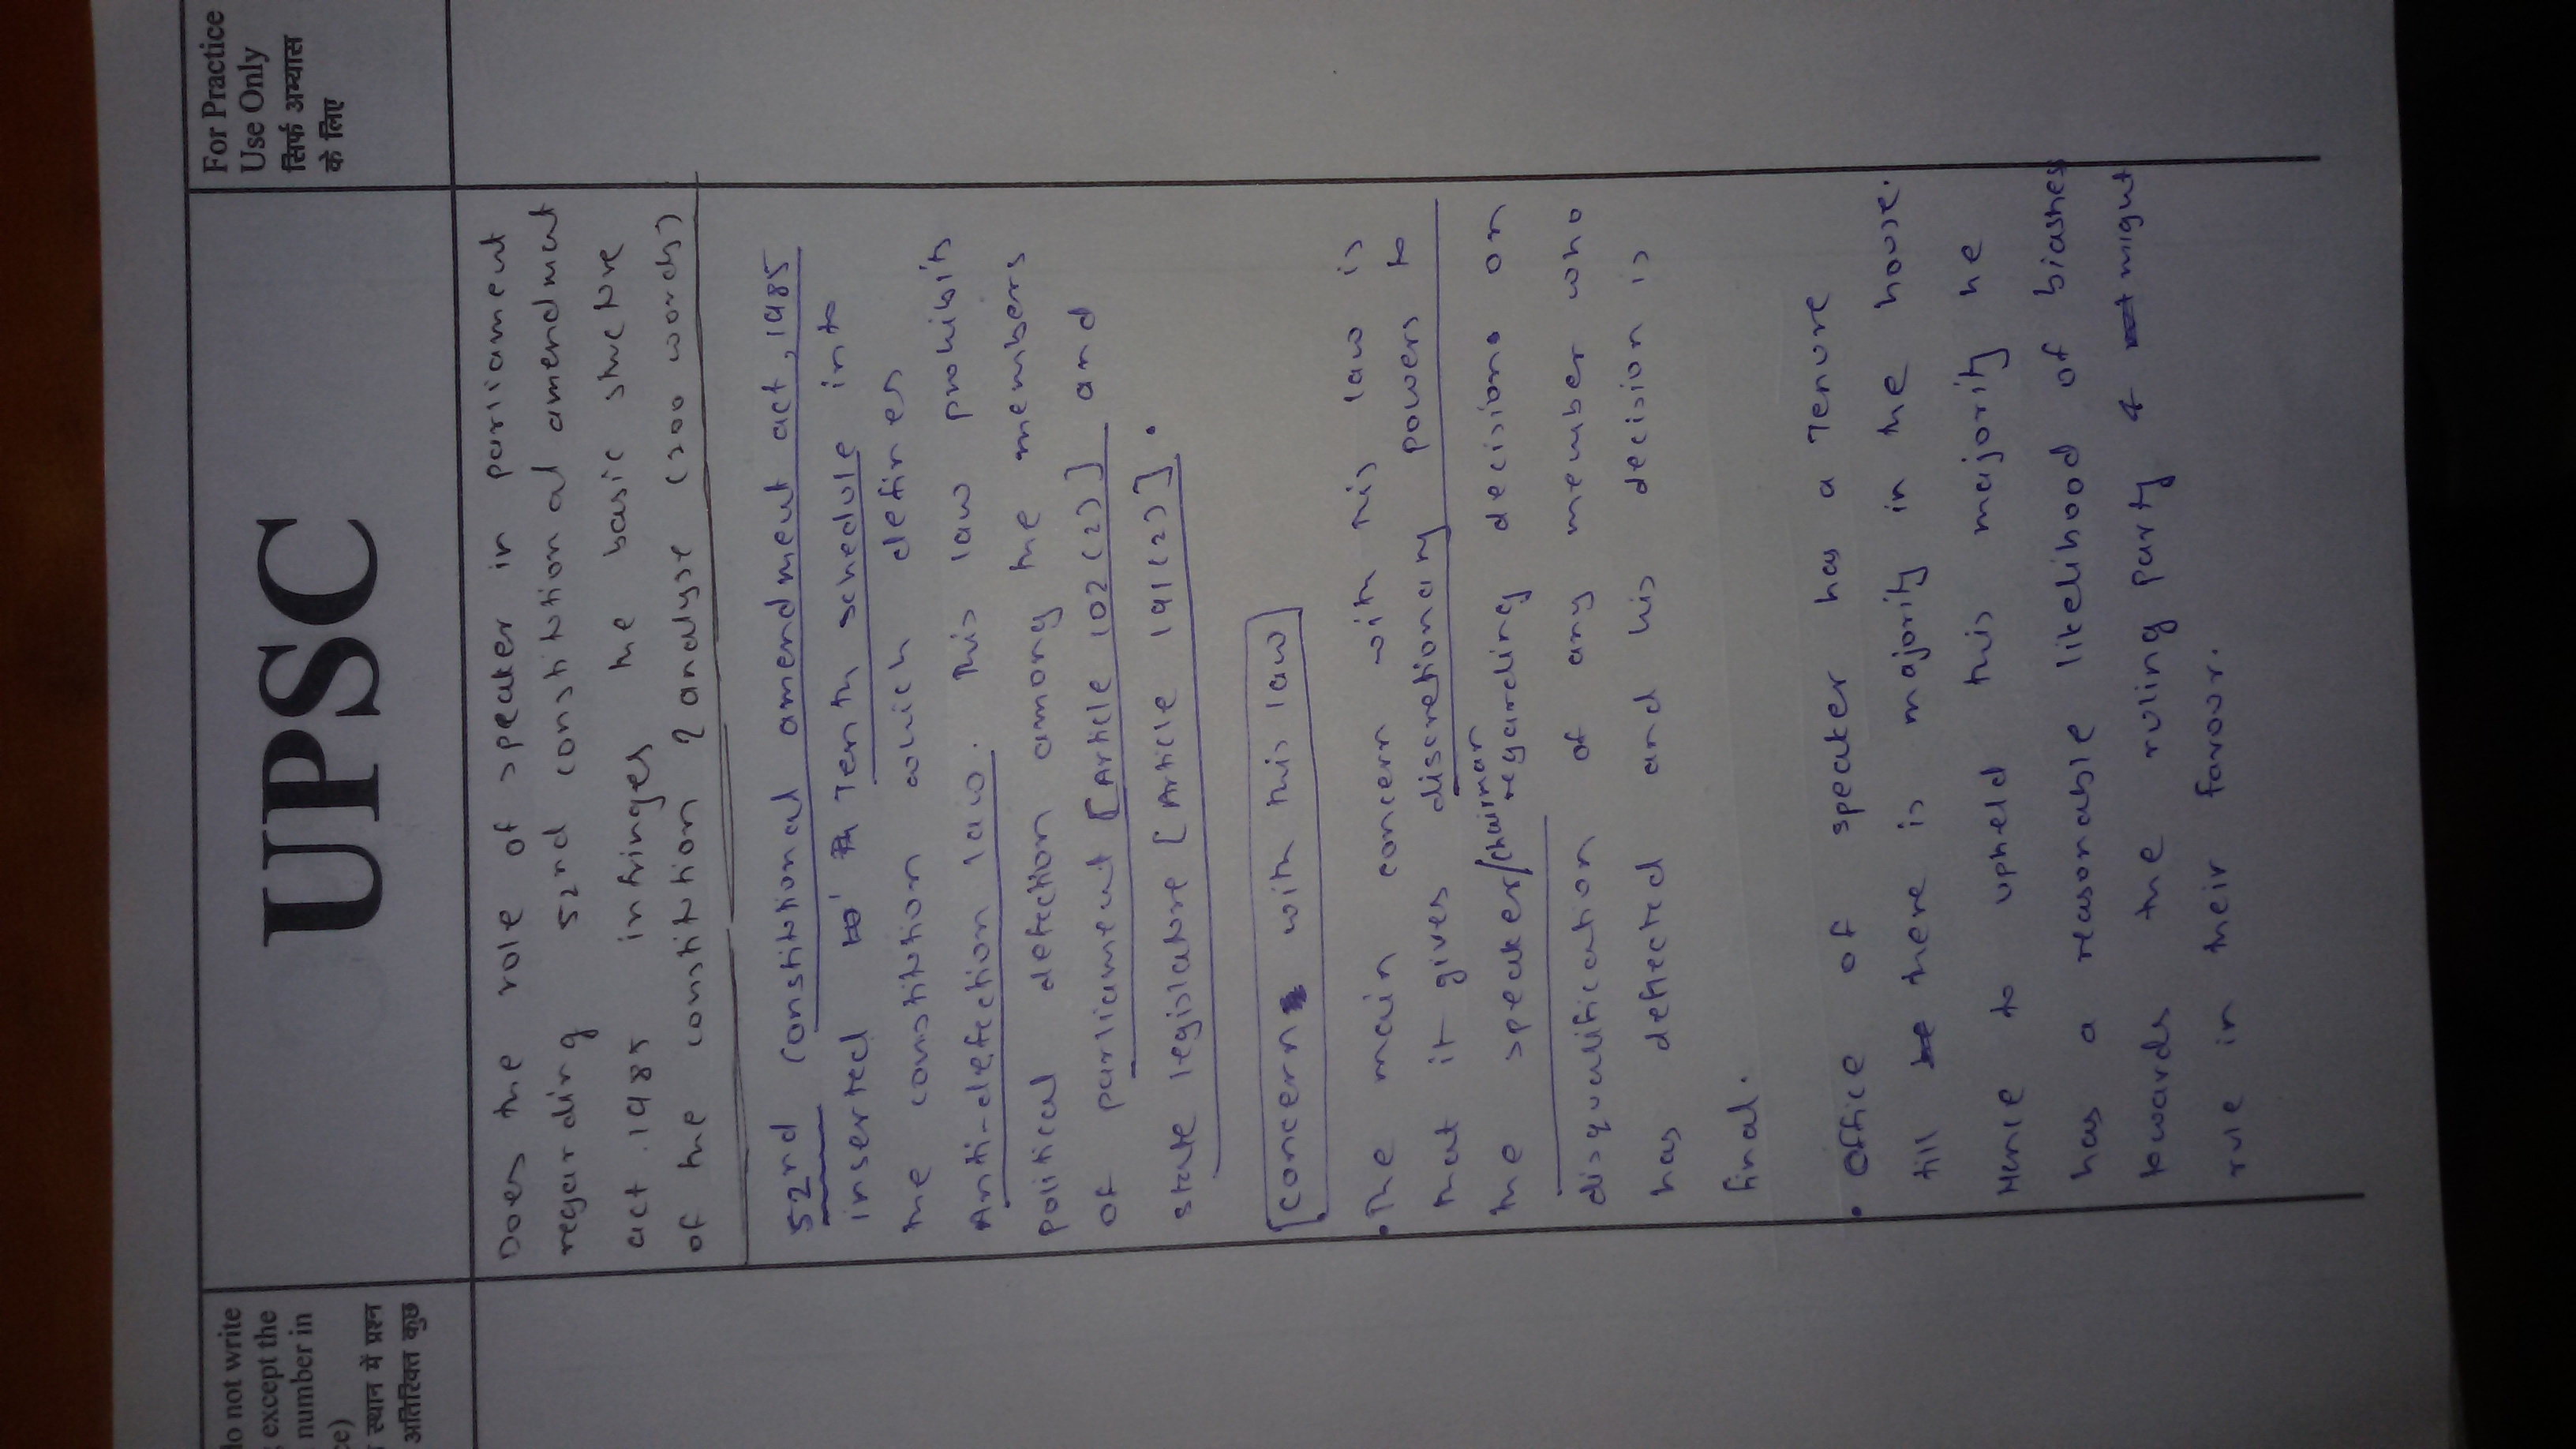 For Practice
Use Only
सिर्फ अभ्यास
के लिए
UPSC
do not write
except the
number in
ce)
स्थान में प्रश्न
अतिरिक्त कुछ
Does the role of speaker in parliament
regarding 52nd constitutional amendment
act .1985 infringes the basic structure
of the constitution ? analyse (200 words)
52nd Constitutional amendment act, 1985
inserted Tenth schedule into
the constitution which defines
Anti-defection law. This law prohibits
political defection among the members
of parliament [Article 102(2)] and
state legislature [Article 191(2)].
Concern with this law
• The main concern with this law is
that it gives discretionary powers to
the speaker/chairman regarding decisions on
disqualification of any member who
has defected and his decision is
final.
• Office of speaker has a Tenure
till there is majority in the house.
Hence to upheld this majority he
has a reasonable likelihood of biashes
towards the ruling party & might
rule in their favour.